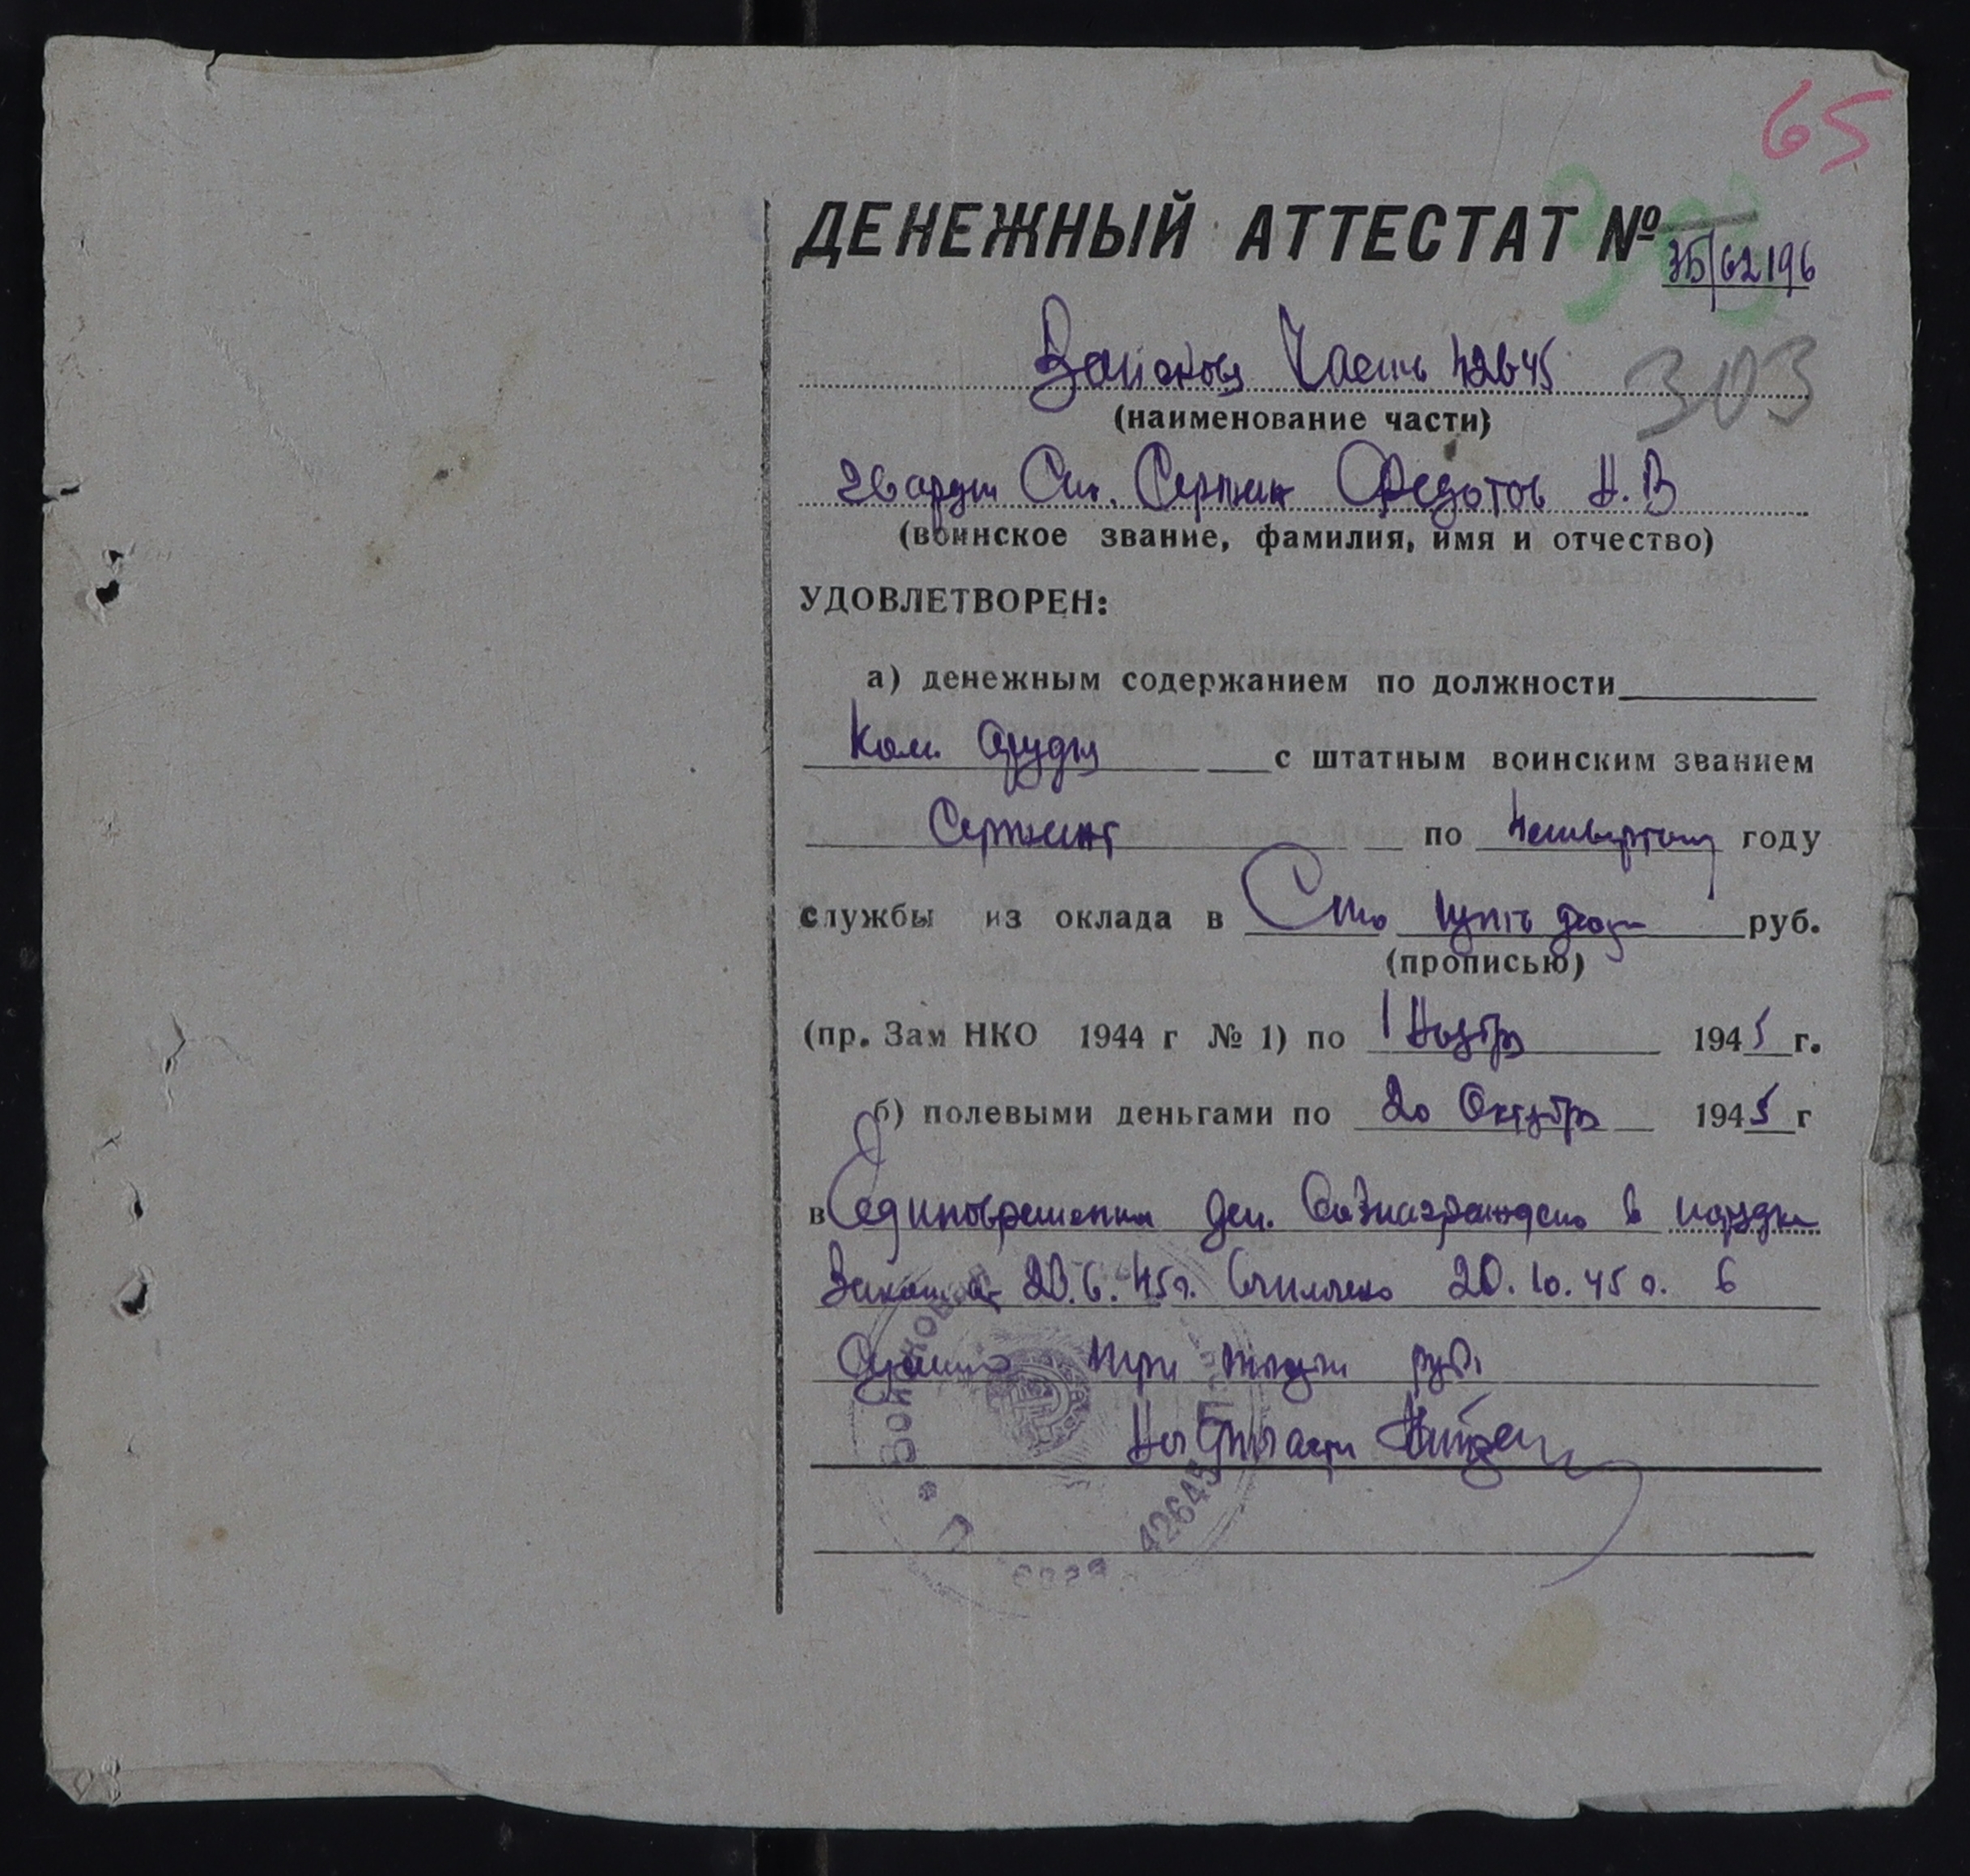 65
ДЕНЕЖНЫЙ АТТЕСТАТ №
35/62196
Войсковая Часть 42645
303
(наименование части)
гвардии Ст. Сержан Федотов Н. В
(воинское звание, фамилия, имя и отчество)
УДОВЛЕТВОРЕН:
а) денежным содержанием по должности
Ком. орудия с штатным воинским званием
Сержант по четвертому году
службы из оклада в Сто руб.
(прописью)
(пр. Зам НКО 1944 г № 1) по 1 Ноября 1945 г.
б) полевыми деньгами по 20 Октября 1945 г
в Единовременным ден. вознаграждено в порядке
Закона от 23.6.45г. 20.10.45 г. в
Сумме три тысячи руб.
42645